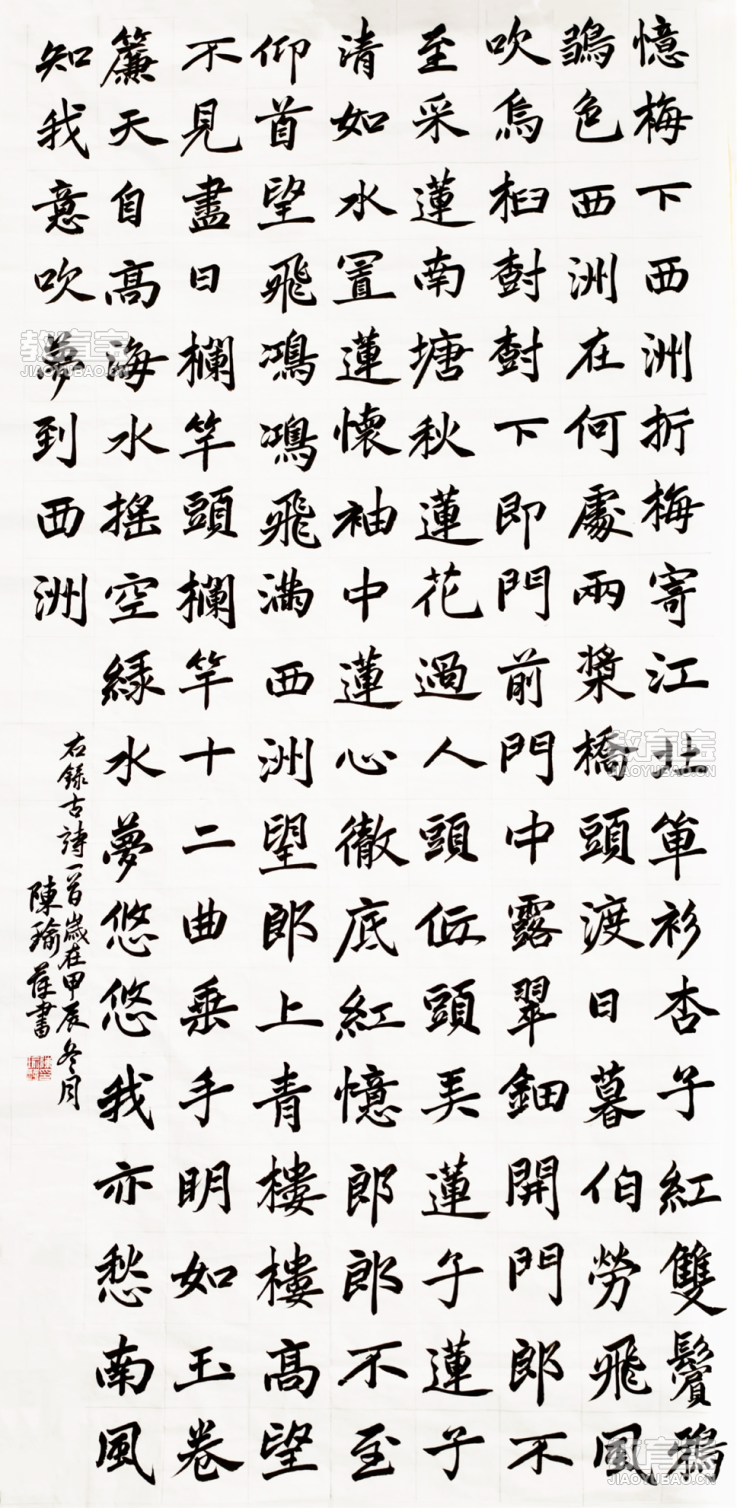 憶梅下西洲折梅寄江北單衫杏子紅雙鬢鴉
鶵色西洲在何處兩槳橋頭渡日暮伯勞飛風
吹烏桕樹樹下即門前門中露翠鈿開門郎不
至采蓮南塘秋蓮花過人頭低頭弄蓮子蓮子
清如水置蓮懷袖中蓮心徹底紅憶郎郎不至
仰首望飛鴻鴻飛滿西洲望郎上青樓樓高望
不見盡日欄竿頭欄竿十二曲垂手明如玉卷
簾天自高海水搖空綠水夢悠悠我亦愁南風
知我意吹夢到西洲
右錄古詩一首歲在甲辰冬月
陳瑜書
教育宝
JIAOYUBAO.CN
教育宝
JIAOYUBAO.CN
教育宝
JIAOYUBAO.CN